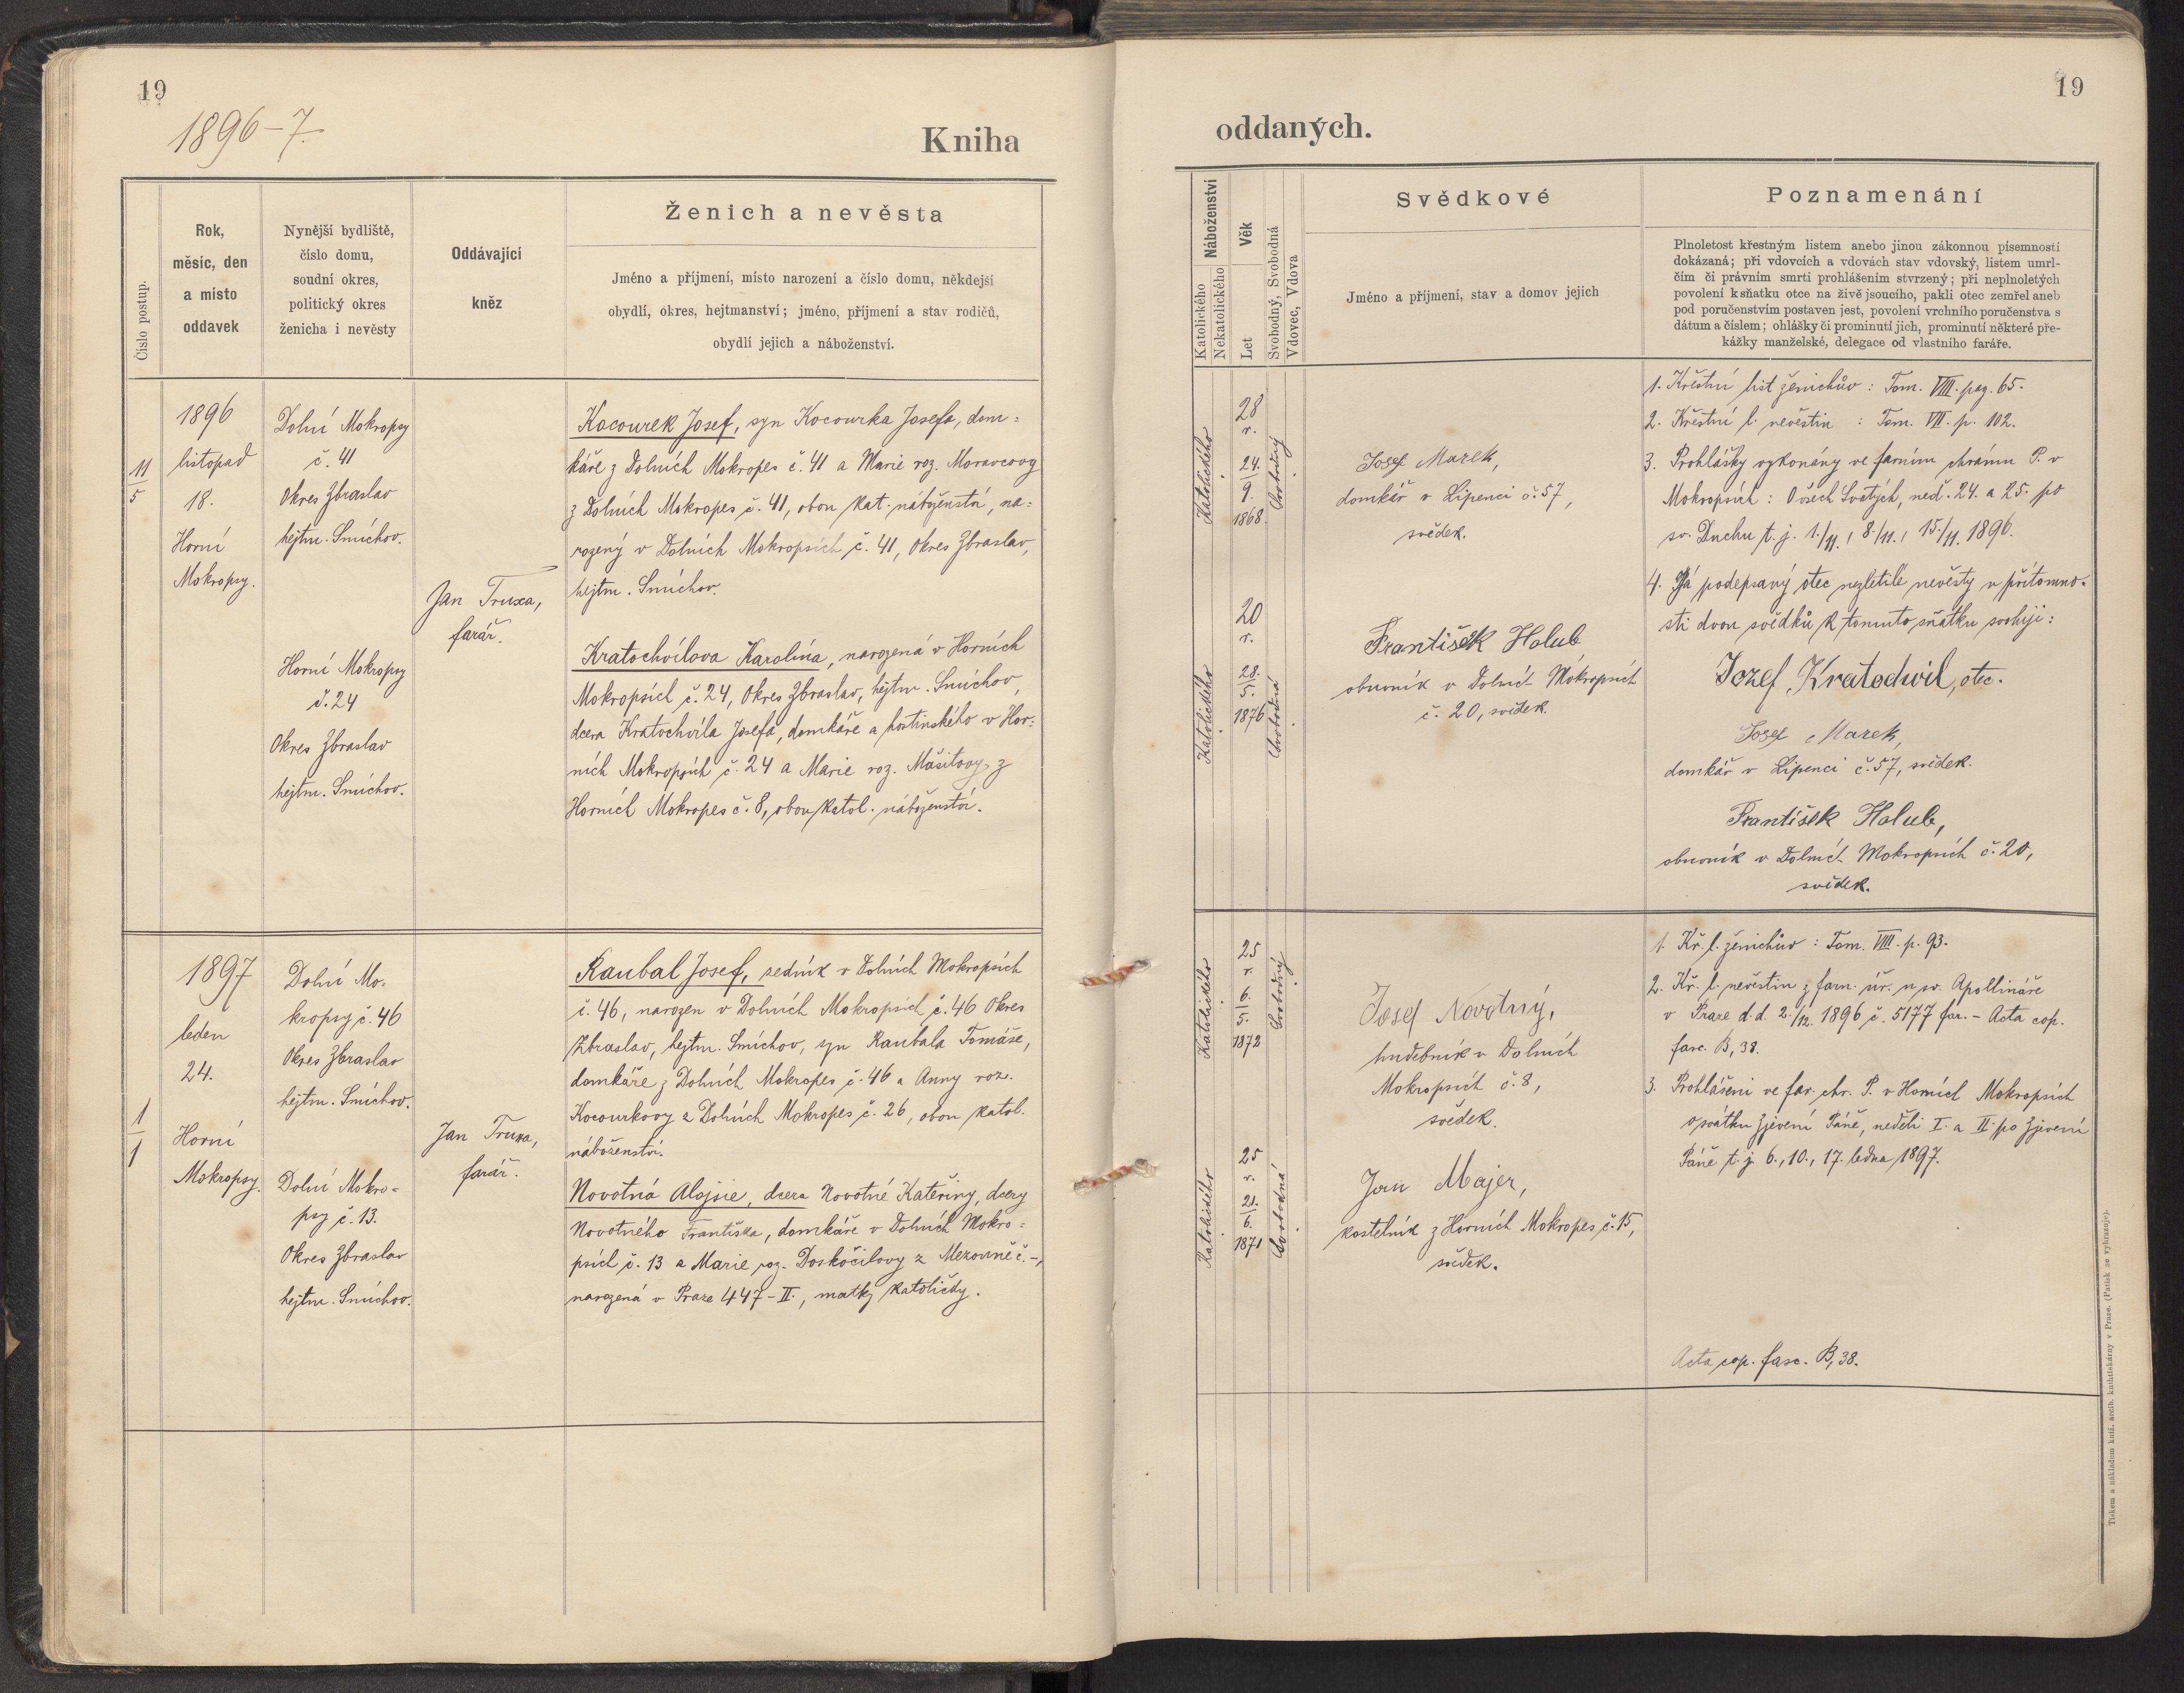 19
1896–7.
Kniha
Číslo postup.
Rok,
měsíc, den
a místo
oddavek
Nynější bydliště,
číslo domu,
soudní okres,
politický okres
ženicha i nevěsty
Oddávající
kněz
Ženich a nevěsta
Jméno a příjmení, místo narození a číslo domu, někdejší
obydlí, okres, hejtmanství; jméno, příjmení a stav rodičů,
obydlí jejich a náboženství.
11
5
1896
listopad
18.
Horní
Mokropsy.
Dolní Mokropsy
č. 41
Okres Zbraslav
hejtm. Smíchov.
Horní Mokropsy
č. 24
Okres Zbraslav
hejtm. Smíchov.
Jan Truxa,
farář.
Kocourek Josef, syn Kocourka Josefa, dom=
káře z Dolních Mokropes č. 41 a Marie roz. Moravcovy
z Dolních Mokropes č. 41, obou kat. náboženství, na=
rozený v Dolních Mokropsích č. 41, Okres Zbraslav,
hejtm. Smíchov.
Kratochvílova Karolina, narozená v Horních
Mokropsích č. 24, Okres Zbraslav, hejtm. Smíchov,
dcera Kratochvíla Josefa, domkáře a hostinského v Hor=
ních Mokropsích č. 24 a Marie roz. Mašitovy z
Horních Mokropes č. 8, obou katol. náboženství.
1
1
1897
leden
24.
Horní
Mokropsy.
Dolní Mo-
kropsy č. 46
Okres Zbraslav
hejtm. Smíchov.
Dolní Mokro-
psy č. 13.
Okres Zbraslav
hejtm. Smíchov.
Jan Truxa,
farář.
Kaubal Josef, sedník v Dolních Mokropsích
č. 46, narozen v Dolních Mokropsích č. 46 Okres
Zbraslav, hejtm. Smíchov, syn Kaubala Tomáše,
domkáře z Dolních Mokropes č. 46 a Anny roz.
Kocourkovy z Dolních Mokropes č. 26, obou katol.
náboženství.
Novotná Aloisie, dcera Novotné Kateřiny, dcery
Novotného Františka, domkáře v Dolních Mokro=
psích č. 13 a Marie roz. Doskočilovy z Mezouně č. –,
narozená v Praze 447–II., matky katoličky.
19
oddaných.
Náboženství
Katolického
Nekatolického
Věk
Let
Svobodný, Svobodná
Vdovec, Vdova
Svědkové
Jméno a příjmení, stav a domov jejich
Poznamenání
Plnoletost křestným listem anebo jinou zákonnou písemností
dokázaná; při vdovcích a vdovách stav vdovský, listem umrl-
čím či právním smrti prohlášením stvrzený; při neplnoletých
povolení k sňatku otce na živě jsoucího, pakli otec zemřel aneb
pod poručenstvím postaven jest, povolení vrchního poručenstva s
dátum a číslem; ohlášky či prominutí jich, prominutí některé pře-
kážky manželské, delegace od vlastního faráře.
Katolického
28
r.
24.
9.
1868.
Svobodný
Josef Marek,
domkář v Lipenci č. 57,
svědek.
Katolického
20
r.
28.
5.
1876
Svobodná
František Holub
obuvník v Dolních Mokropsích
č. 20, svědek.
1. Křestní list ženichův : Tom. VIII. pag. 65.
2. Křestní l. nevěstin : Tom. VII. p. 102.
3. Prohlášky vykonány ve farním chrámu P. v
Mokropsích : O všech Svatých, neď. 24. a 25. po
sv. Duchu t. j. 1./11., 8./11., 15./11. 1896.
4. Já podepsaný otec nezletilé nevěsty v přítomno-
sti dvou svědků k tomuto sňatku svoluji:
Jozef Kratochwil, otec.
Josef Marek,
domkář v Lipenci č. 57, svědek.
František Holub,
obuvník v Dolních Mokropsích č. 20,
svědek.
Katolického
25
r.
6.
5.
1872
Svobodný
Josef Novotný,
hudebník v Dolních
Mokropsích č. 8,
svědek.
Katolického
25
r.
21.
6.
1871
Svobodná
Jan Majer,
kostelník z Horních Mokropes č. 15,
svědek.
1. Kř. l. ženichův : Tom. VIII. p. 93.
2. Kř. l. nevěstin z farn. úř. u sv. Apollináře
v Praze d. d. 2./12. 1896 č. 5177 far. – Acta cop.
fasc. B, 38.
3. Prohlášeni ve far. chr. P. v Horních Mokropsích
o svátku Zjevení Páně, neděli I. a II. po Zjevení
Páně t. j. 6., 10., 17. ledna 1897.
Acta cop. fasc. B, 38.
Tiskem a nákladem kníž. arcib. knihtiskárny v Praze. (Patisk se vyhrazuje).